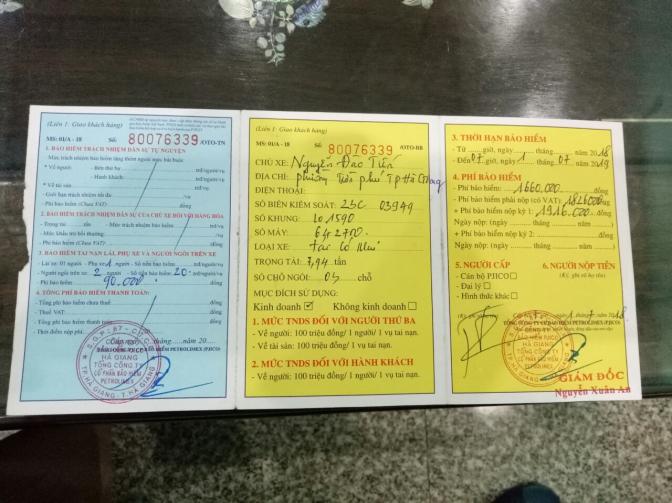 (Liên 1: Giao khách hàng)
MS: 01/A - 18 Số: 80076339 /OTO-TN
1. BẢO HIỂM TRÁCH NHIỆM DÂN SỰ TỰ NGUYỆN
Mức trách nhiệm bảo hiểm tăng thêm ngoài mức bắt buộc
* Về người: - Bên thứ ba trđ/vụ
- Hành khách: trđ/vụ
* Về tài sản: trđ/vụ
- Giới hạn trách nhiệm tối đa
- Phí bảo hiểm (Chưa VAT) đồng
2. BẢO HIỂM TRÁCH NHIỆM DÂN SỰ CỦA CHỦ XE ĐỐI VỚI HÀNG HÓA
- Trọng tải: tấn - Mức trách nhiệm bảo hiểm
- Mức khấu trừ bồi thường:
- Phí bảo hiểm (Chưa VAT): đồng
3. BẢO HIỂM TAI NẠN LÁI, PHỤ XE VÀ NGƯỜI NGỒI TRÊN XE
- Lái xe: 01 người - Phụ xe: 1 người - Số tiền bảo hiểm: trđ/người/vụ
- Người ngồi trên xe: 2 người - Số tiền bảo hiểm: 20 trđ/người/vụ
- Phí bảo hiểm: 90.000 đồng
4. TỔNG PHÍ BẢO HIỂM THANH TOÁN:
- Tổng phí bảo hiểm chưa thuế: đồng
- Thuế VAT: đồng
- Tổng phí bảo hiểm thanh toán: đồng
- Thời điểm nộp phí:
tháng 20
BẢO HIỂM PJICO
HÀ GIANG
TỔNG CÔNG TY
CỔ PHẦN BẢO HIỂM
PETROLIMEX
TP. HÀ GIANG - T. HÀ GIANG
(Liên 1: Giao khách hàng)
MS: 01/A - 18 Số: 80076339 /OTO-BB
CHỦ XE: Nguyễn Đạo Tiến
ĐỊA CHỈ: phường Trần phú Tp Hà Giang
ĐIỆN THOẠI:
SỐ BIỂN KIỂM SOÁT: 23C 03949
SỐ KHUNG: 101590
SỐ MÁY: 642700
LOẠI XE: Tải có mui
TRỌNG TẢI: 7,94 tấn
SỐ CHỖ NGỒI: 03 chỗ
MỤC ĐÍCH SỬ DỤNG:
Kinh doanh Không kinh doanh
1. MỨC TNDS ĐỐI VỚI NGƯỜI THỨ BA
- Về người: 100 triệu đồng/ 1 người/ 1 vụ tai nạn.
- Về tài sản: 100 triệu đồng/ 1 vụ tai nạn.
2. MỨC TNDS ĐỐI VỚI HÀNH KHÁCH
- Về người: 100 triệu đồng/ 1 người/ 1 vụ tai nạn.
3. THỜI HẠN BẢO HIỂM
- Từ giờ, ngày tháng năm 2018
- Đến 07 giờ, ngày 1 tháng 07 năm 2019
4. PHÍ BẢO HIỂM
- Phí bảo hiểm: 1660.000 đồng
- Phí bảo hiểm phải nộp (có VAT): 1826000
+ Phí bảo hiểm nộp kỳ 1: 1916.000 đồng
Ngày nộp: (ngày / tháng / năm)
+ Phí bảo hiểm nộp kỳ 2: đồng
Ngày nộp: (ngày / tháng / năm)
5. NGƯỜI CẤP 6. NGƯỜI NỘP TIỀN
- Cán bộ PJICO
- Đại lý
- Hình thức khác
1 7 18
TỔNG CÔNG TY CỔ PHẦN BẢO HIỂM PETROLIMEX (PJICO)
BẢO HIỂM PJICO
HÀ GIANG
TỔNG CÔNG TY
CỔ PHẦN BẢO HIỂM
PETROLIMEX
GIÁM ĐỐC
Nguyễn Xuân An